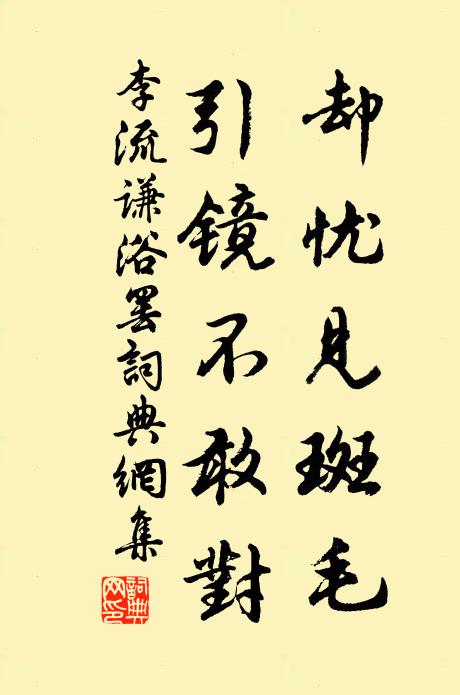 却忧见斑毛
引镜不敢對
李流谦浴罢詞典網集
詞典网印